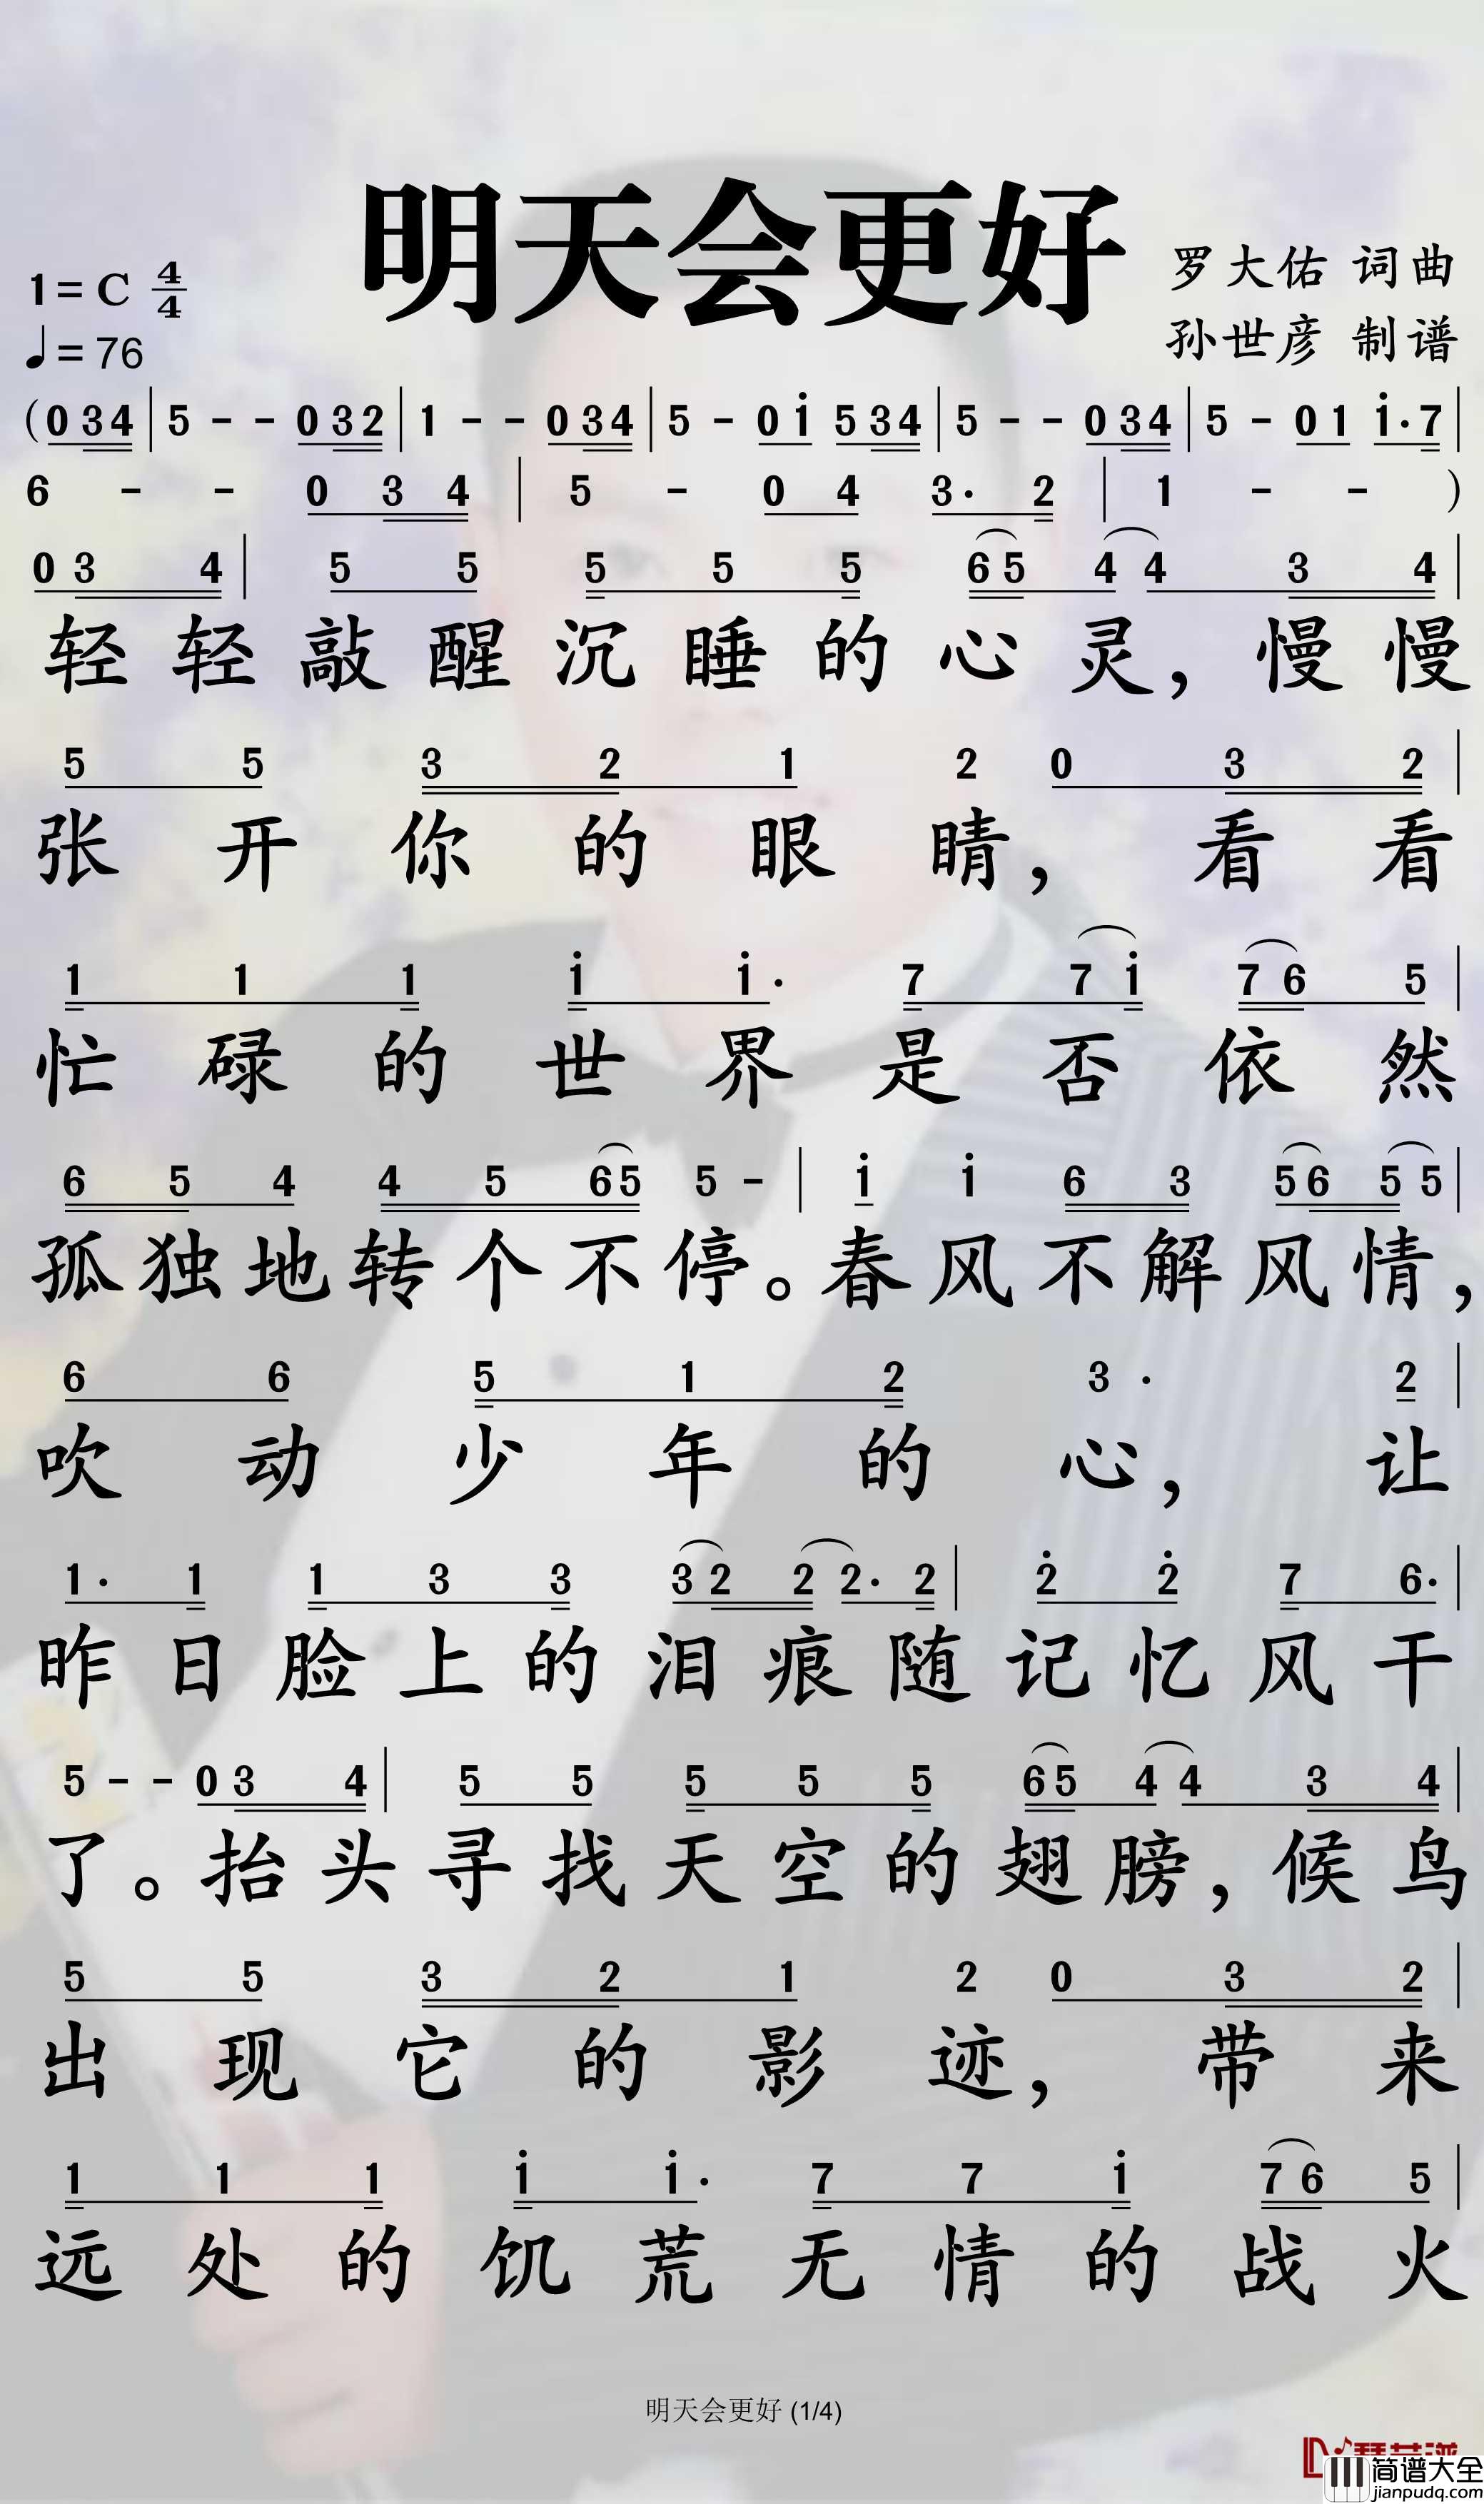 明天会更好
1=C 4/4
♩=76
罗大佑 词曲
孙世彦 制谱
(0 3 4 | 5 - - 0 3 2 | 1 - - 0 3 4 | 5 - 0 i 5 3 4 | 5 - - 0 3 4 | 5 - 0 1 i· 7 |
6 - - 0 3 4 | 5 - 0 4 3· 2 | 1 - - )
0 3 4 | 5 5 5 5 5 6 5 4 4 3 4 |
轻轻敲醒沉睡的心灵，慢慢
5 5 3 2 1 2 0 3 2 |
张开你的眼睛，看看
1 1 1 i i· 7 7 i 7 6 5 |
忙碌的世界是否依然
6 5 4 4 5 6 5 5 - | i i 6 3 5 6 5 5 |
孤独地转个不停。春风不解风情，
6 6 5 1 2 3· 2 |
吹动少年的心，让
1· 1 1 3 3 3 2 2 2· 2 | 2̇ 2̇ 7 6· |
昨日脸上的泪痕随记忆风干
5 - - 0 3 4 | 5 5 5 5 5 6 5 4 4 3 4 |
了。抬头寻找天空的翅膀，候鸟
5 5 3 2 1 2 0 3 2 |
出现它的影迹，带来
1 1 1 i i· 7 7 i 7 6 5 |
远处的饥荒无情的战火
明天会更好 (1/4)
简谱大全
jianpudq.com